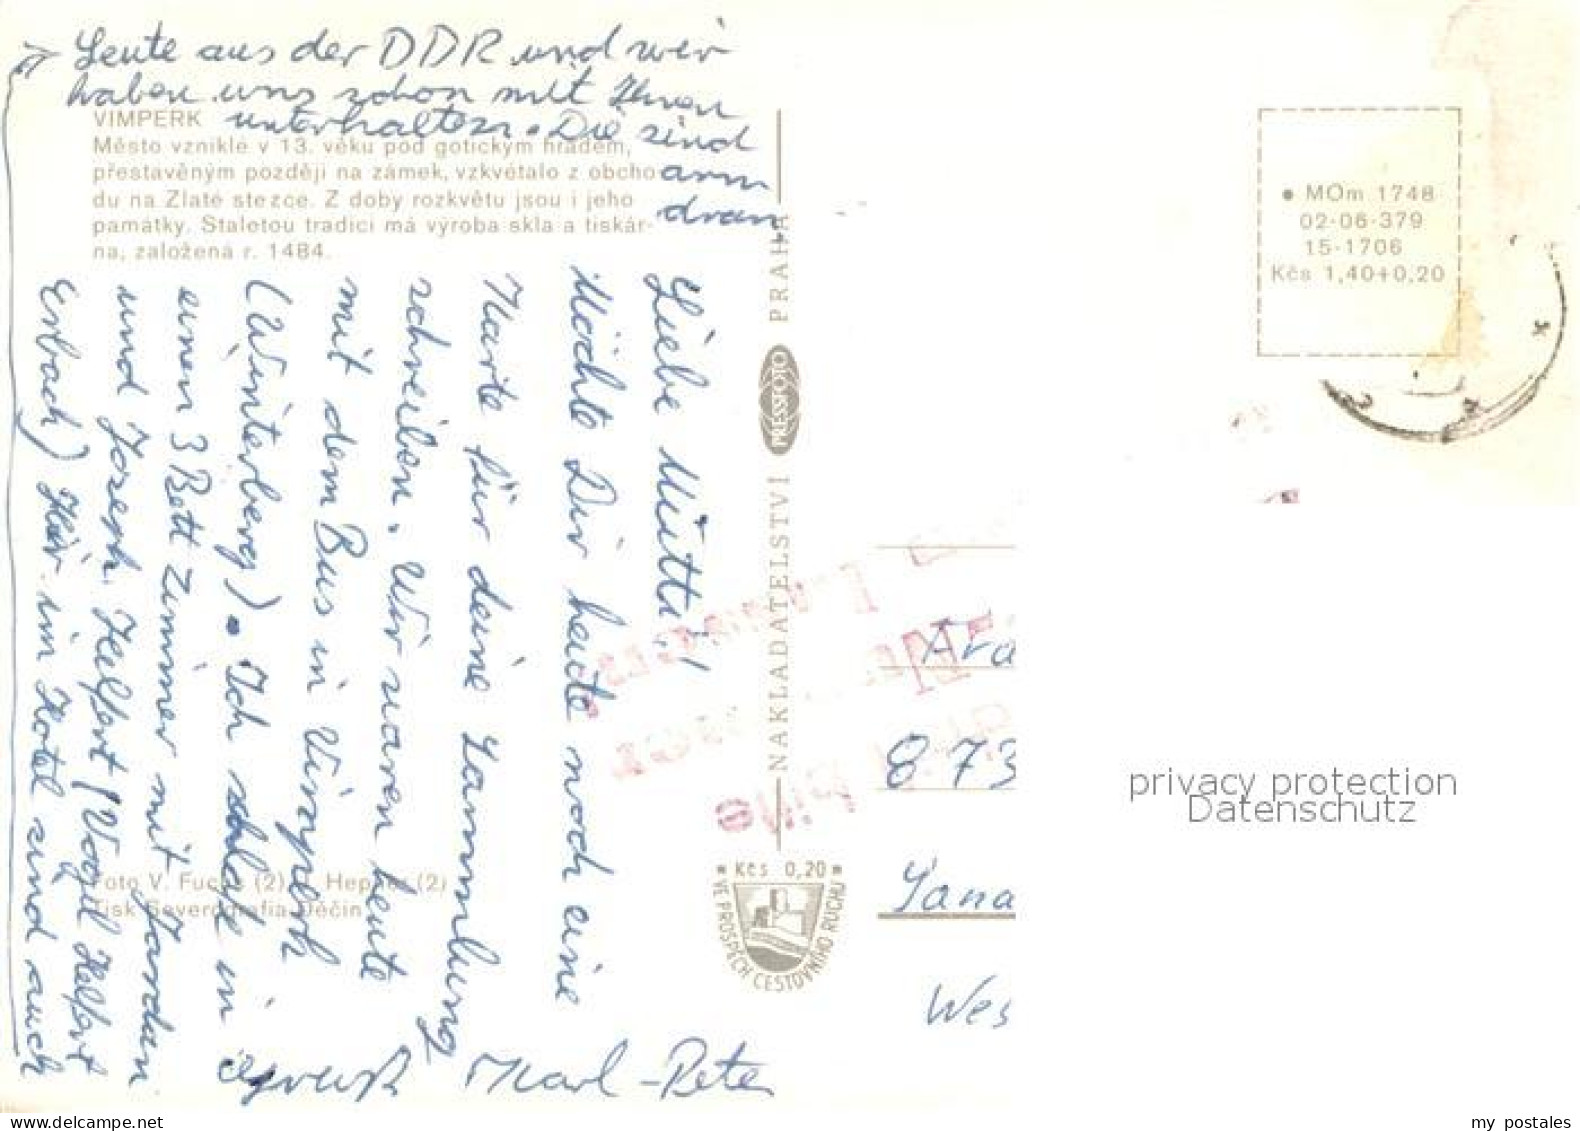 Leute aus der DDR und wir
haben uns schon mit Ihnen
unterhalten. Die sind
arm
dran,
VIMPERK
Město vzniklé v 13. věku pod gotickým hradem,
přestavěným později na zámek, vzkvétalo z obcho
du na Zlaté stezce. Z doby rozkvětu jsou i jeho
památky. Staletou tradici má výroba skla a tiskár-
na, založená r. 1484.
Liebe Mutti!
Möchte Dir heute noch eine
Karte für deine Sammlung
schreiben. Wir waren heute
mit dem Bus in Vimperk
(Winterberg). Ich schlafe in
einen 3 Bett Zimmer mit Jordan
und Joseph Helfert (Vogil Helfert
Erbach) Hier im Hotel sind auch
Gruß Karl-Peter
Foto V. Fuchs (2), Hepner (2)
Tisk Severografia Děčín
NAKLADATELSTVÍ PRESSFOTO PRAHA
Kčs 0,20
VE PROSPĚCH CESTOVNÍHO RUCHU
MOm 1748
02-06-379
15-1706
Kčs 1,40+0,20
873
Wes
privacy protection
Datenschutz
my postales